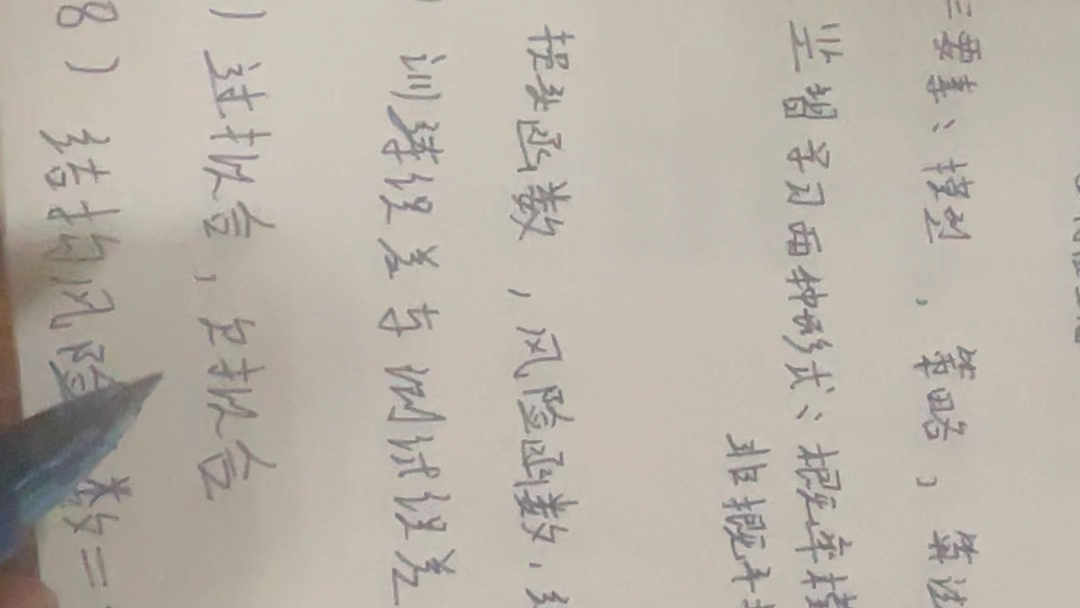 三要素：模型，策略，算法
监督学习两种形式：概率模
非概率
损失函数，风险函数，经
训练误差与测试误差
）过拟合，欠拟合
8）结构风险 数=